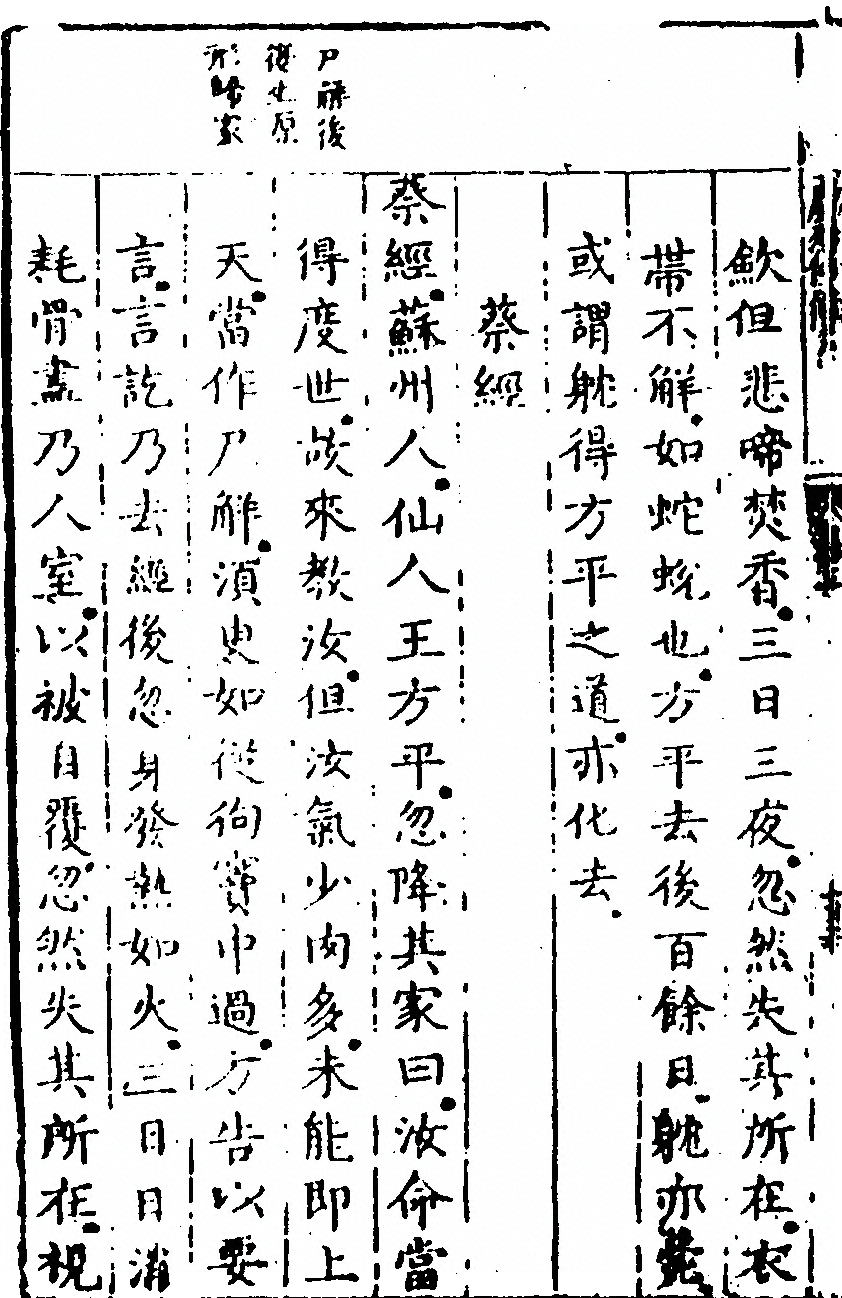 尸解後
復生原
形歸家
歛但悲啼焚香三日三夜忽然失其所在衣
帶不解如蛇蛻也方平去後百餘日躭亦薨
或謂躭得方平之道亦化去
蔡經
蔡經蘇州人仙人王方平忽降其家曰汝命當
得度世故來教汝但汝氣少肉多未能即上
天當作尸解須臾如從狗竇中過方告以要
言言訖乃去經後忽身發熱如火三日日消
耗骨盡乃入室以被自覆忽然失其所在視